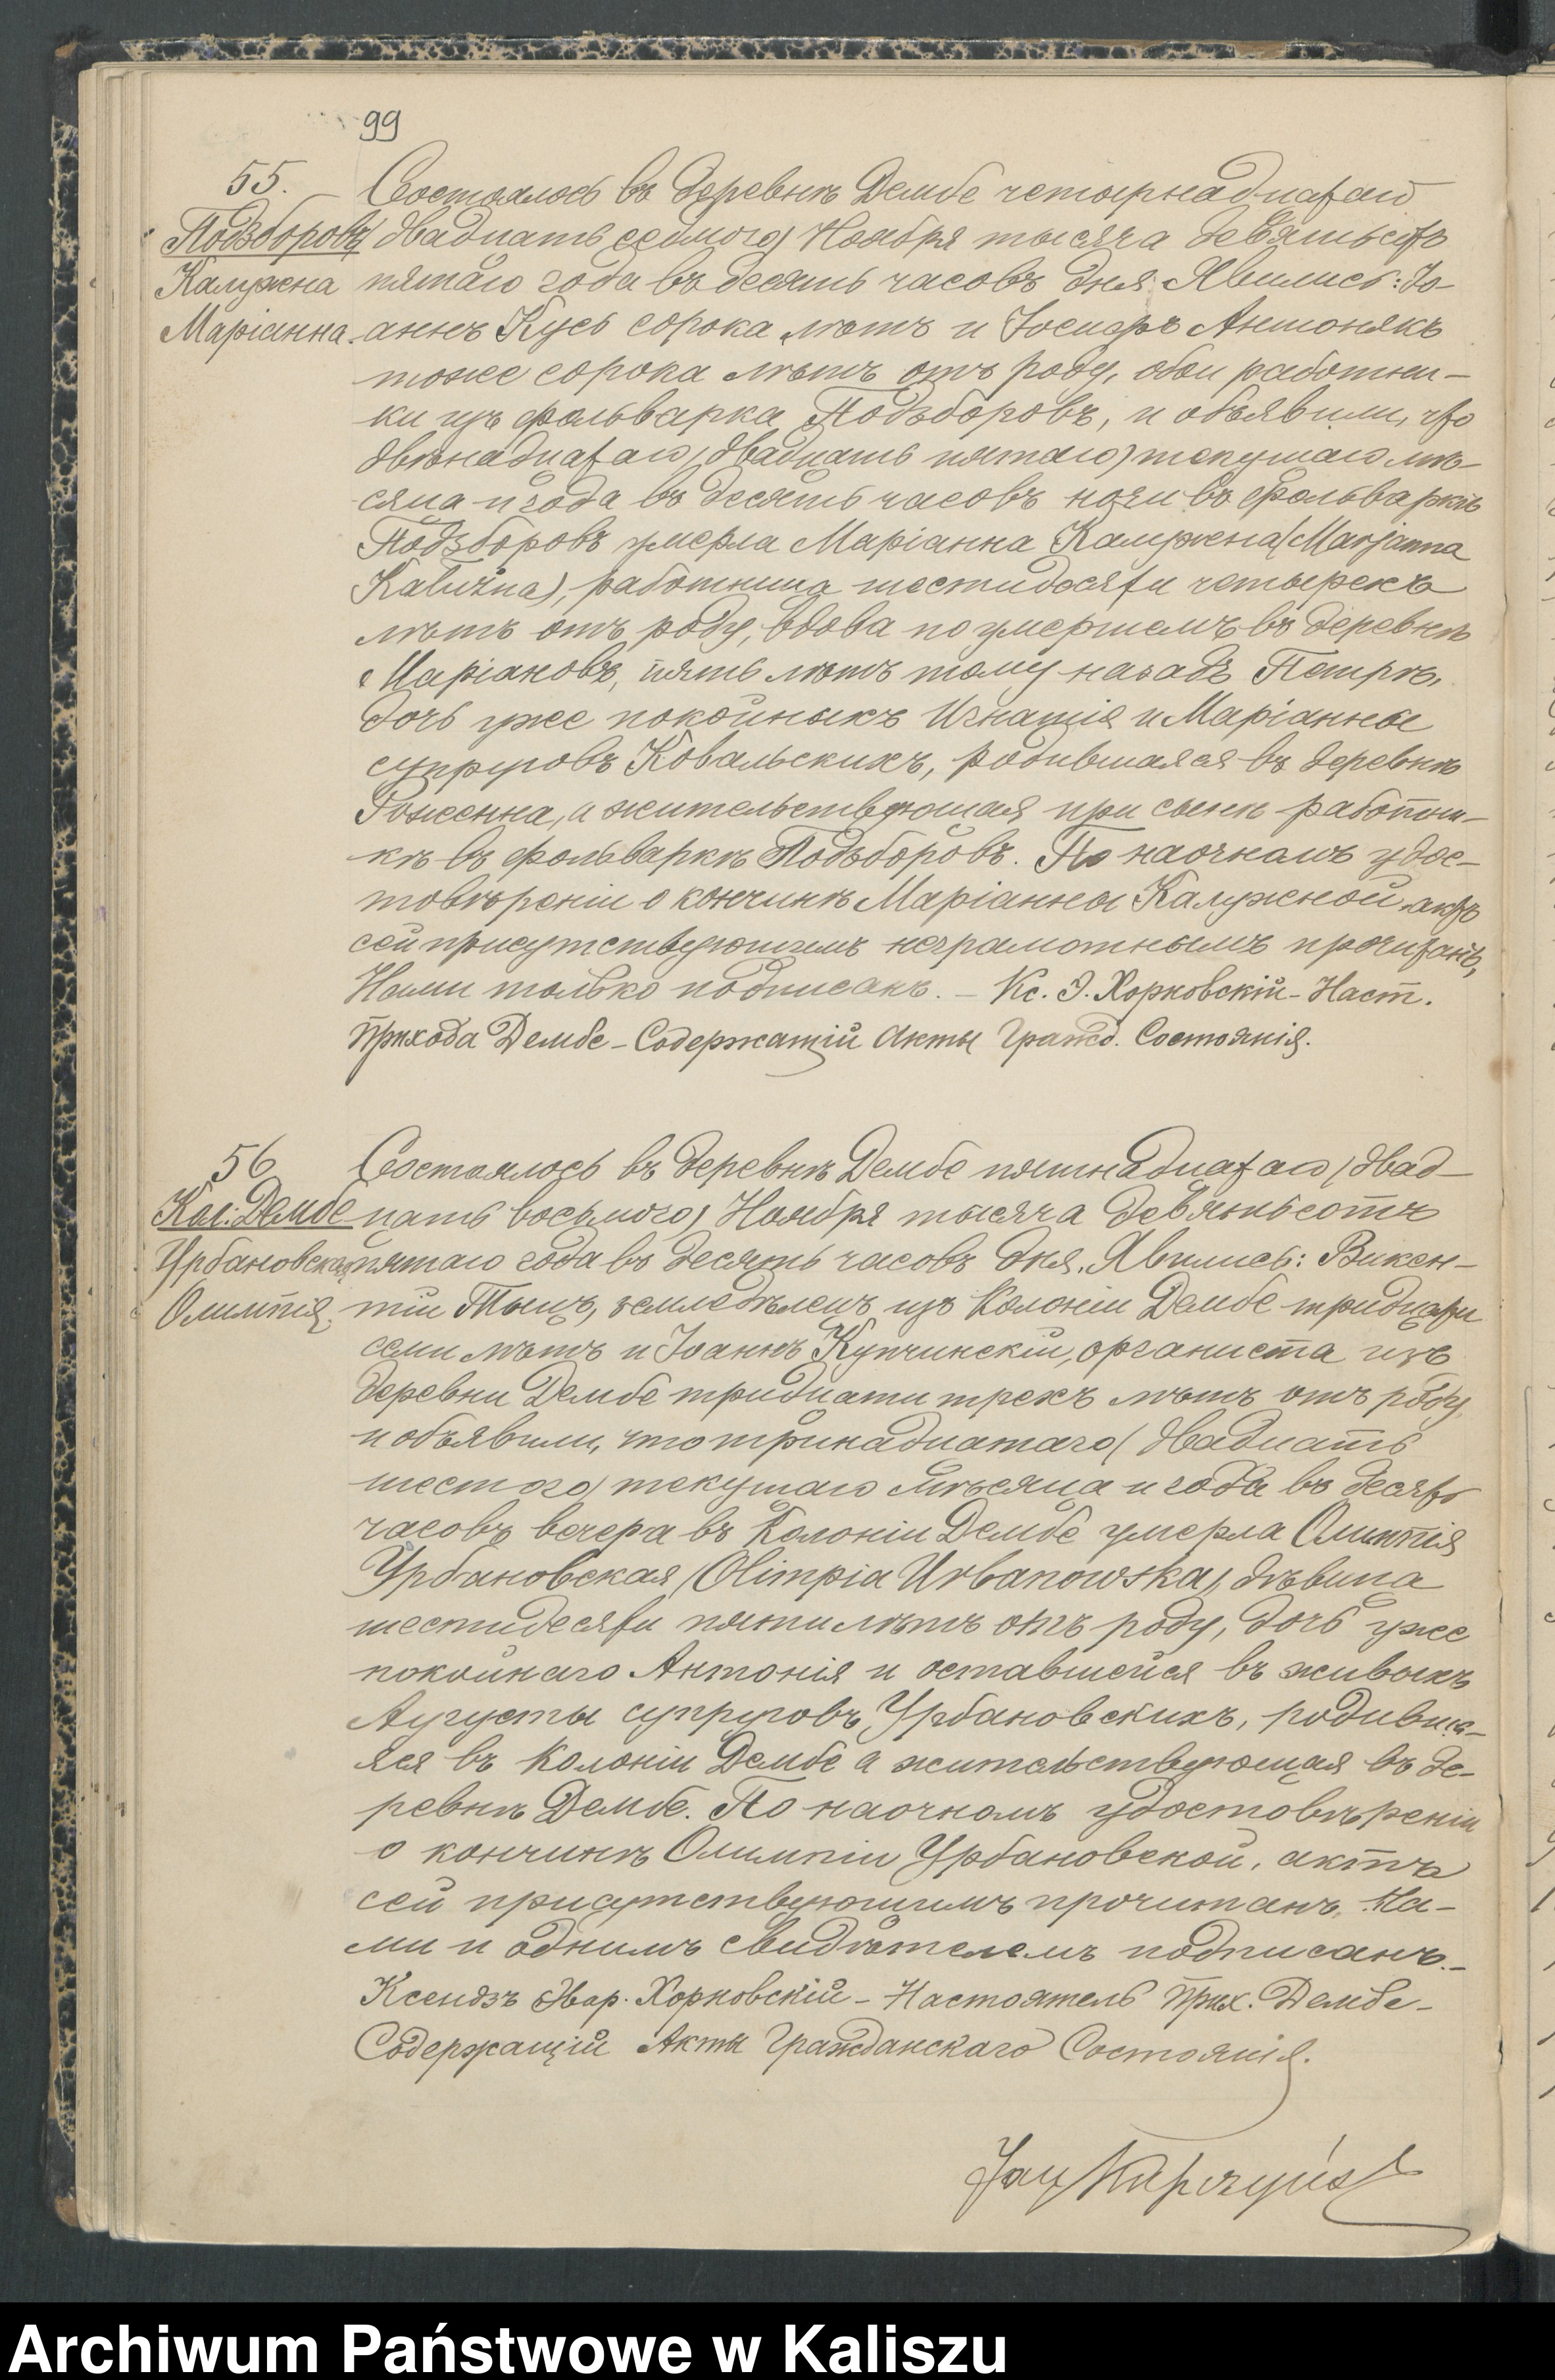 99
55.
Подзборовъ
Калужна
Маріанна.
Состоялось въ деревнѣ Дембе четырнадцатаго
(двадцать седьмого) Ноября тысяча девятьсотъ
пятаго года въ десять часовъ дня. Явились: Іо-
аннъ Кусь сорока лѣтъ и Іосифъ Антонякъ
тоже сорока лѣтъ отъ роду, оба работни-
ки изъ фольварка Подзборовъ, и объявили, что
двѣнадцатаго (двадцать пятаго) текущаго мѣ-
сяца и года въ десять часовъ ночи въ фольваркѣ
Подзборовъ умерла Маріанна Калужна (Marjanna
Kałużna), работница шестидесяти четырехъ
лѣтъ отъ роду, вдова по умершемъ въ деревнѣ
Маріановъ, пять лѣтъ тому назадъ Петрѣ,
дочь уже покойныхъ Игнатія и Маріанны
супруговъ Ковальскихъ, родившаяся въ деревнѣ
а жительствующая при сынѣ работни-
кѣ въ фольваркѣ Подзборовъ. По наочномъ удос-
товѣреніи о кончинѣ Маріанны Калужной, актъ
сей присутствующимъ неграмотнымъ прочитанъ,
Нами только подписанъ. – Кс. Э. Хорковскій – Наст.
Прихода Дембе – Содержащій Акты Гражд. Состоянія.
56
Кол. Дембе
Урбановская
Олимпія.
Состоялось въ деревнѣ Дембе пятнадцатаго (двад-
цать восьмого) Ноября тысяча девятьсотъ
пятаго года въ десять часовъ дня. Явились: Викен-
тій земледѣлецъ изъ Колоніи Дембе тридцати
семи лѣтъ и Іоаннъ Купчинскій, органиста изъ
деревни Дембе тридцати трехъ лѣтъ отъ роду,
и объявили, что тринадцатаго (двадцать
шестого) текущаго мѣсяца и года въ десять
часовъ вечера въ Колоніи Дембе умерла Олимпія
Урбановская (Olimpia Urbanowska), дѣвица
шестидесяти пяти лѣтъ отъ роду, дочь уже
покойнаго Антонія и оставшейся въ живыхъ
Августы супруговъ Урбановскихъ, родивша-
яся въ Колоніи Дембе а жительствующая въ де-
ревнѣ Дембе. По наочномъ удостовѣреніи
о кончинѣ Олимпіи Урбановской, актъ
сей присутствующимъ прочитанъ, На-
ми и однимъ свидѣтелемъ подписанъ. –
Ксендзъ Эвар. Хорковскій – Настоятель Прих. Дембе –
Содержащій Акты Гражданскаго Состоянія.
Jan Kupczyński
Archiwum Państwowe w Kaliszu